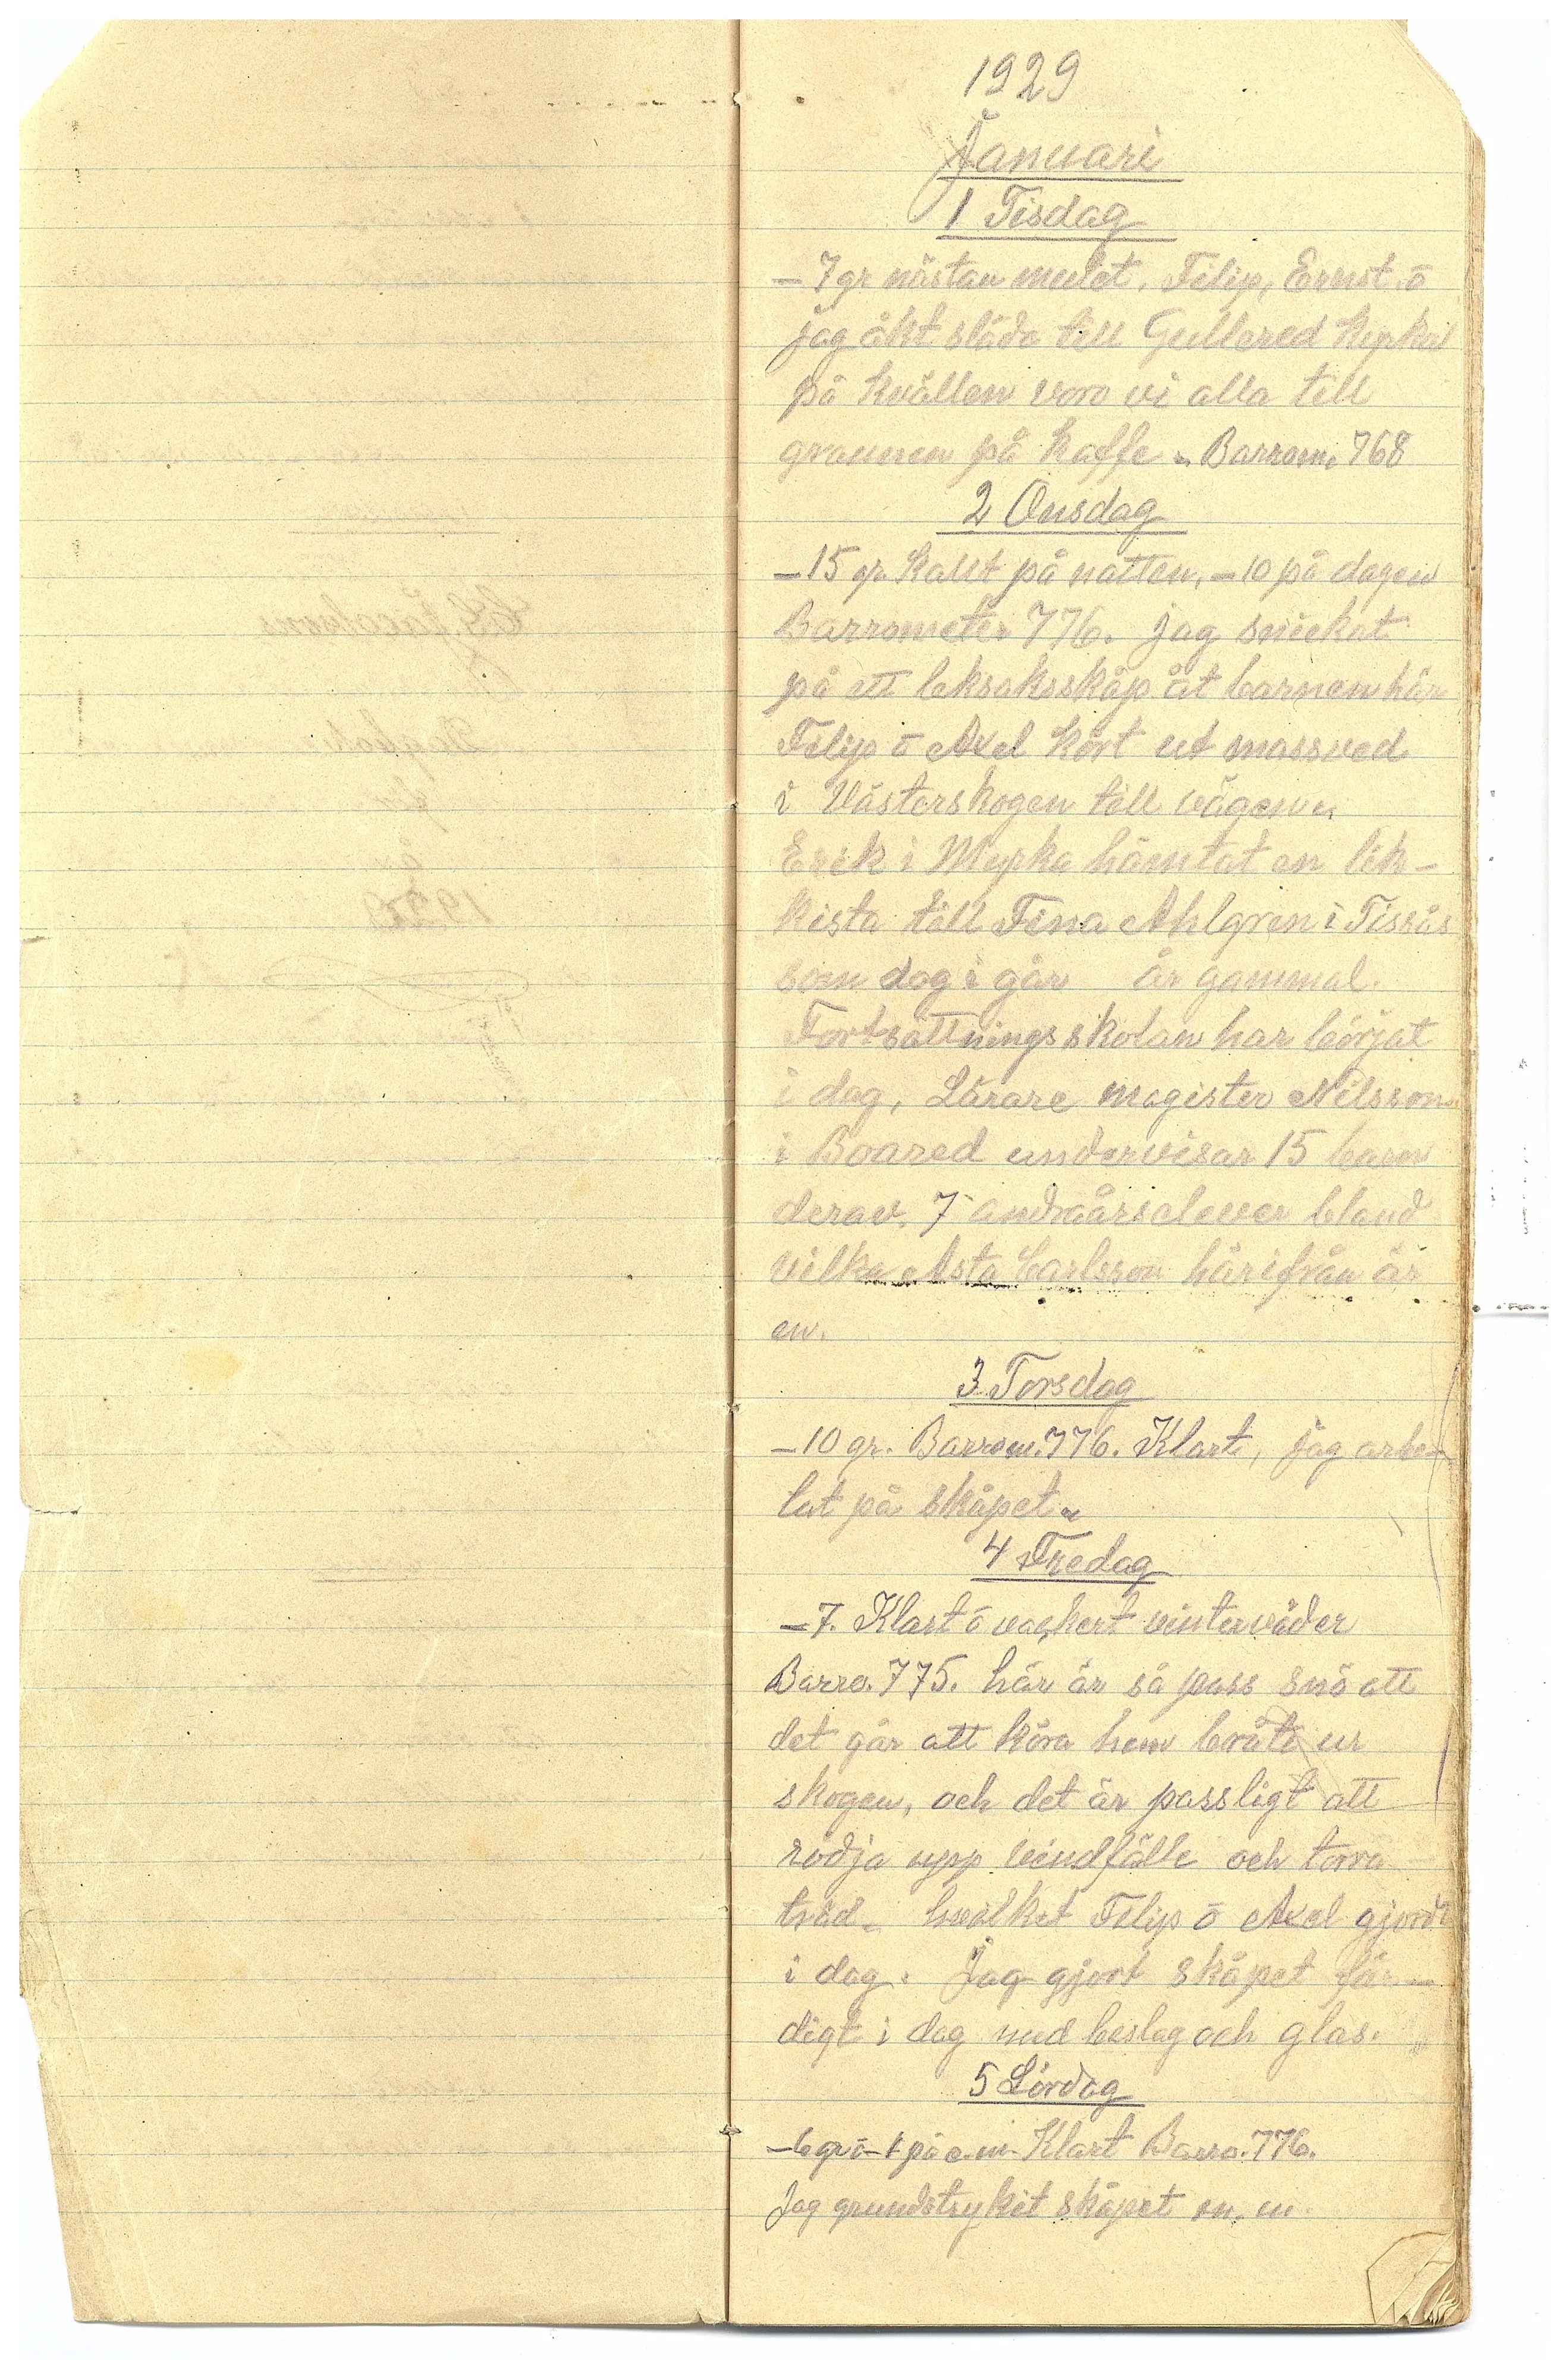 1929
Januari
1 Tisdag
– 7 gr nästan mulet. Filip, Ernst, o
jag åkt släda till Gullered Kyrka
på kvällen voro vi alla till
grannen på kaffe. Barrom. 768
2 Onsdag
– 15 gr. kallt på natten, – 10 på dagen
Barrometer 776. jag snickat
på ett leksaksskåp åt barnen här
Filip o Axel kört ut massved
i Västerskogen till vägen.
Erik i Myrka hämtat en lik-
kista till Fina Ahlgren i Tissås
som dog i går år gammal.
Fortsättningsskolan har börjat
i dag, Lärare magister Nilsson
i Boared undervisar 15 barn
derav. 7 andraårselever bland
vilka Asta Carlsson härifrån är
en.
3 Torsdag
– 10 gr. Barrom. 776. Klart, jag arbe-
tat på skåpet.
4 Fredag
– 7. Klart o vackert vinterväder
Barro. 775. här är så pass snö att
det går att köra hem bråte ur
skogen, och det är passligt att
rödja upp vindfälle och torra
träd. hvilket Filip o Axel gjorde
i dag. Jag gjort skåpet fär-
digt i dag med beslag och glas.
5 Lördag
– 6 gr o – 1 på e.m. Klart Barro. 776.
Jag grundstrykit skåpet